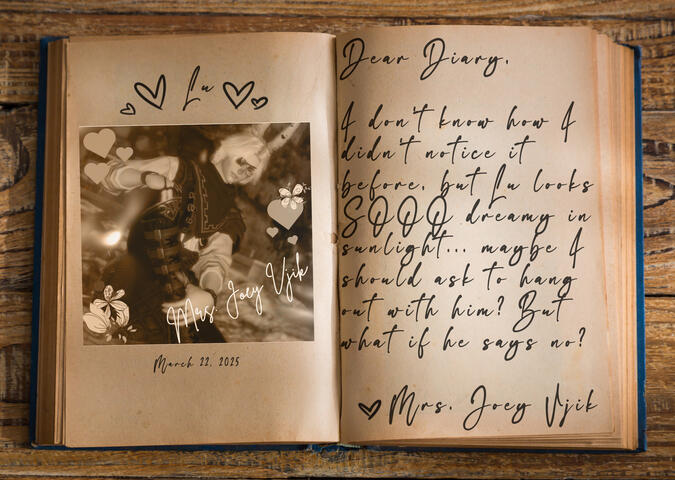 Lu
Mrs. Joey Vjik
March 22, 2025
Dear Diary,
I don't know how I
didn't notice it
before, but Lu looks
SOOO dreamy in
sunlight... maybe I
should ask to hang
out with him? But
what if he says no?
Mrs. Joey Vjik